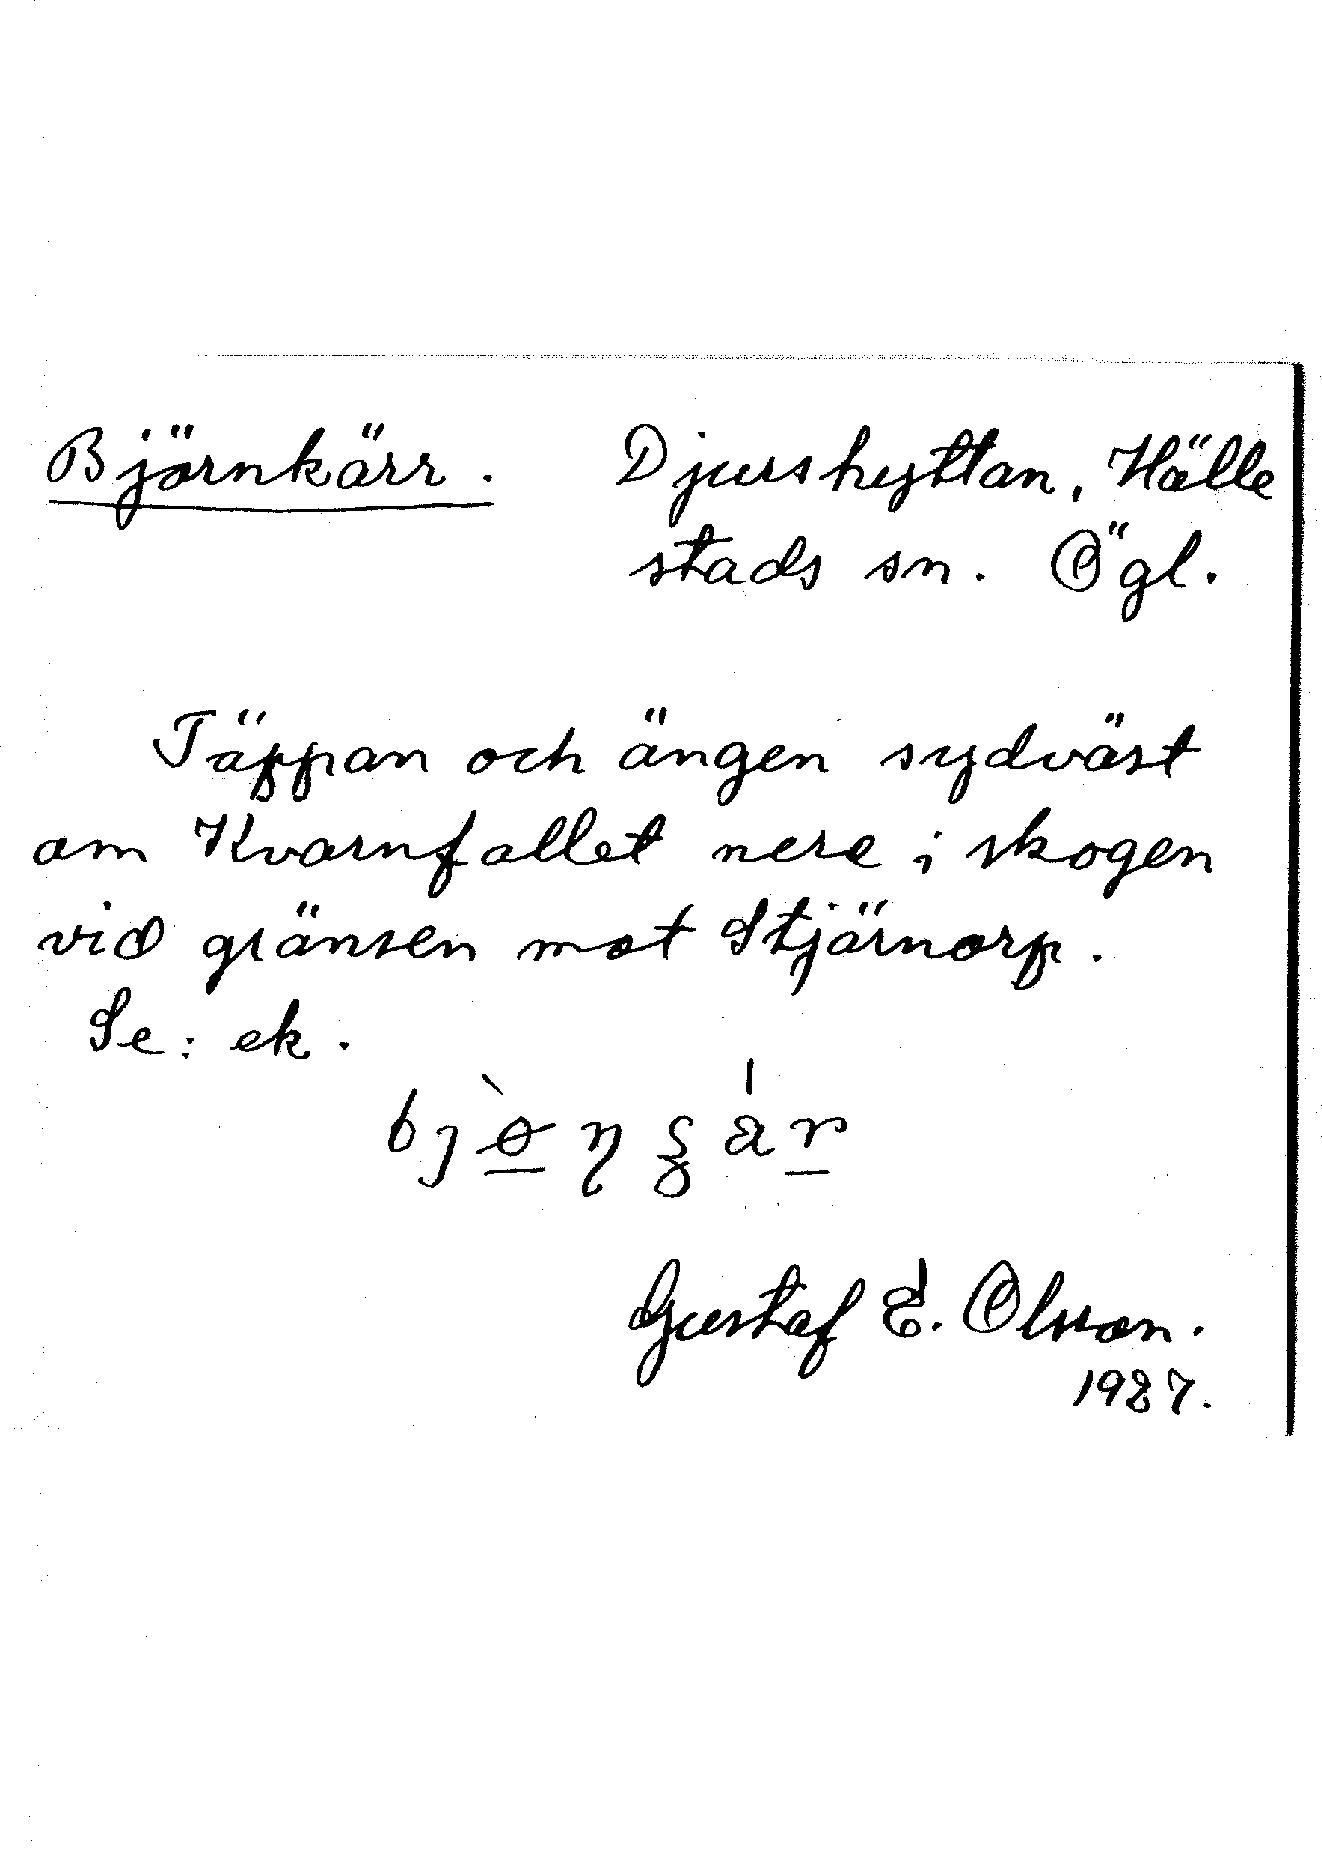 Björnkärr. Djurshyttan, Hälle
stads sn. Ögl.
Täppan och ängen sydväst
om Kvarnfallet nere i skogen
vid gränsen mot Stjärnorp.
Se: ek.
Gustaf E. Olsson.
1927.